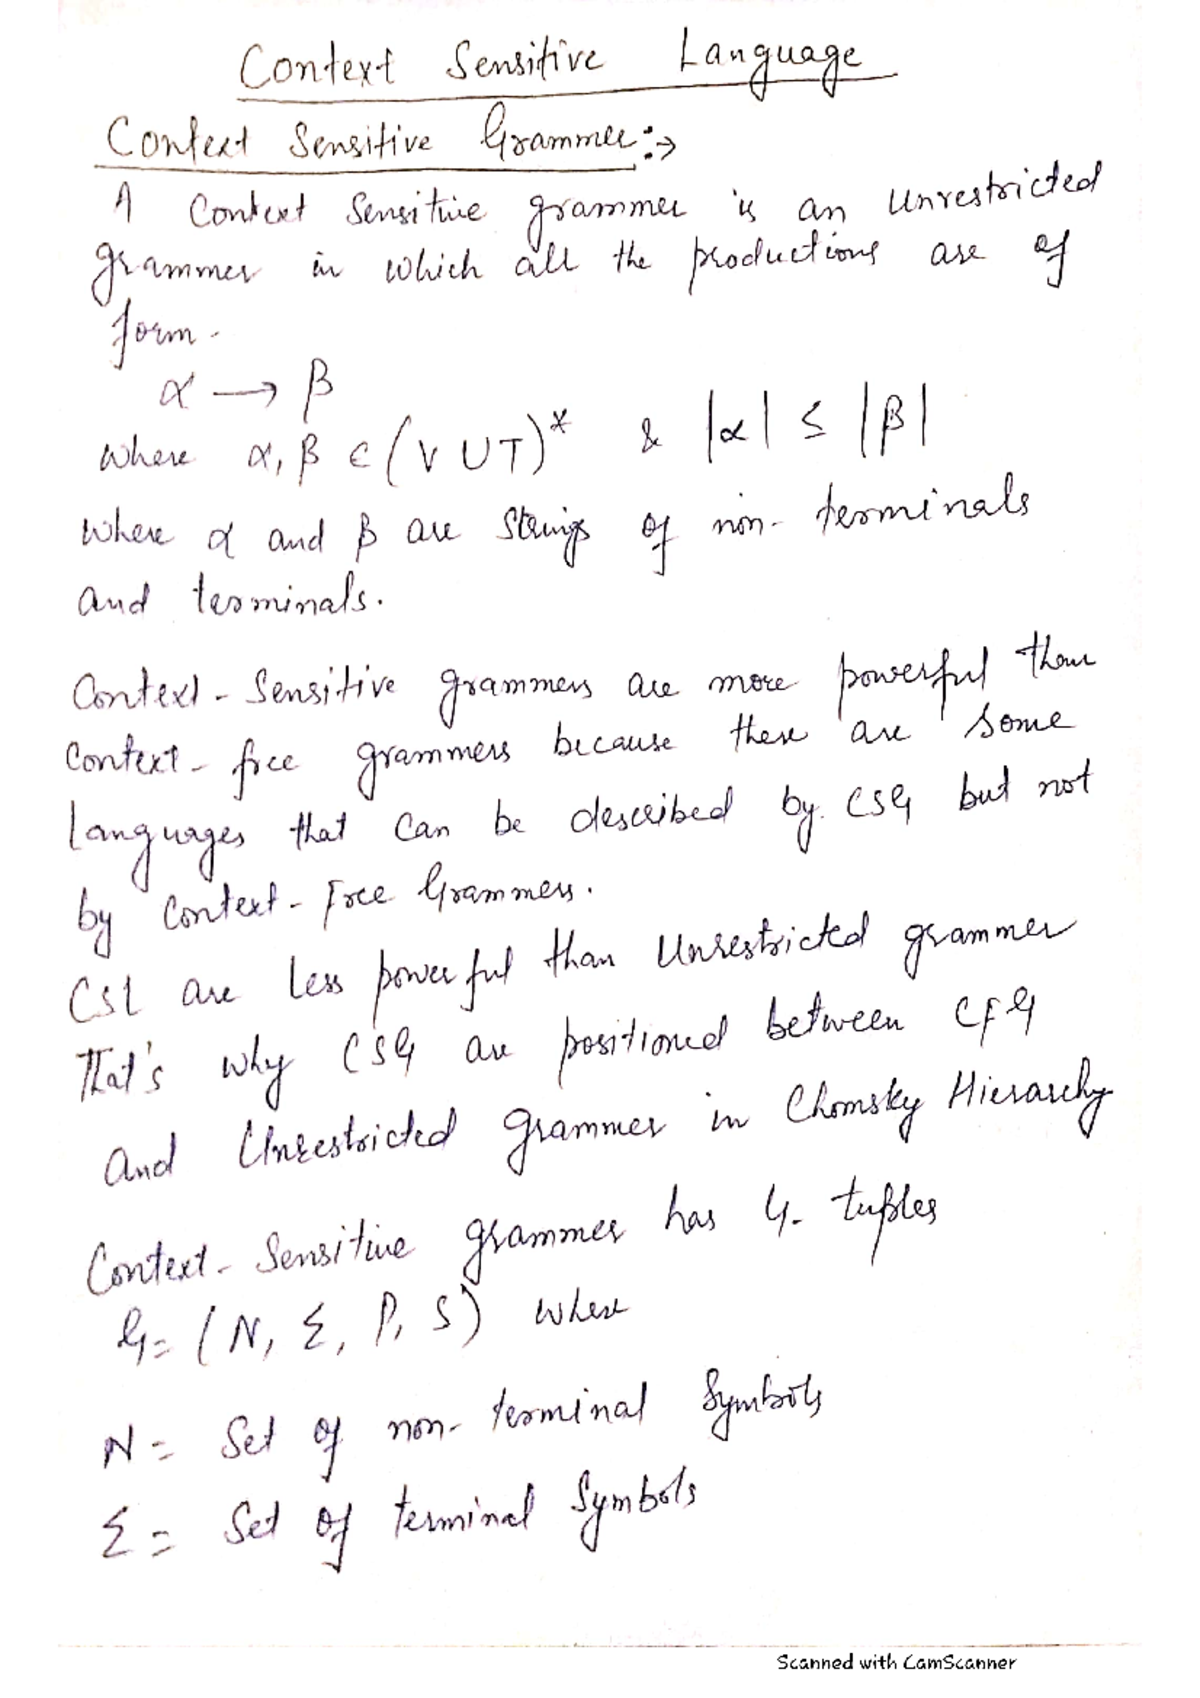 Context Sensitive Language
Context Sensitive Grammer:→
A Context Sensitive grammer is an Unrestricted
grammer in which all the productions are of
form -
α → β
Where α, β ∈ (V ∪ T)* & |α| ≤ |β|
Where α and β are Strings of non-terminals
and terminals.
Context-Sensitive grammers are more powerful than
Context-free grammers because there are some
languages that can be described by CSG but not
by Context-Free Grammers.
CSL are less powerful than Unrestricted grammer
That's why CSG are positioned between CFG
and Unrestricted grammer in Chomsky Hierarchy
Context-Sensitive grammer has 4-tuples
G = (N, Σ, P, S) where
N = Set of non-terminal Symbols
Σ = Set of terminal Symbols
Scanned with CamScanner